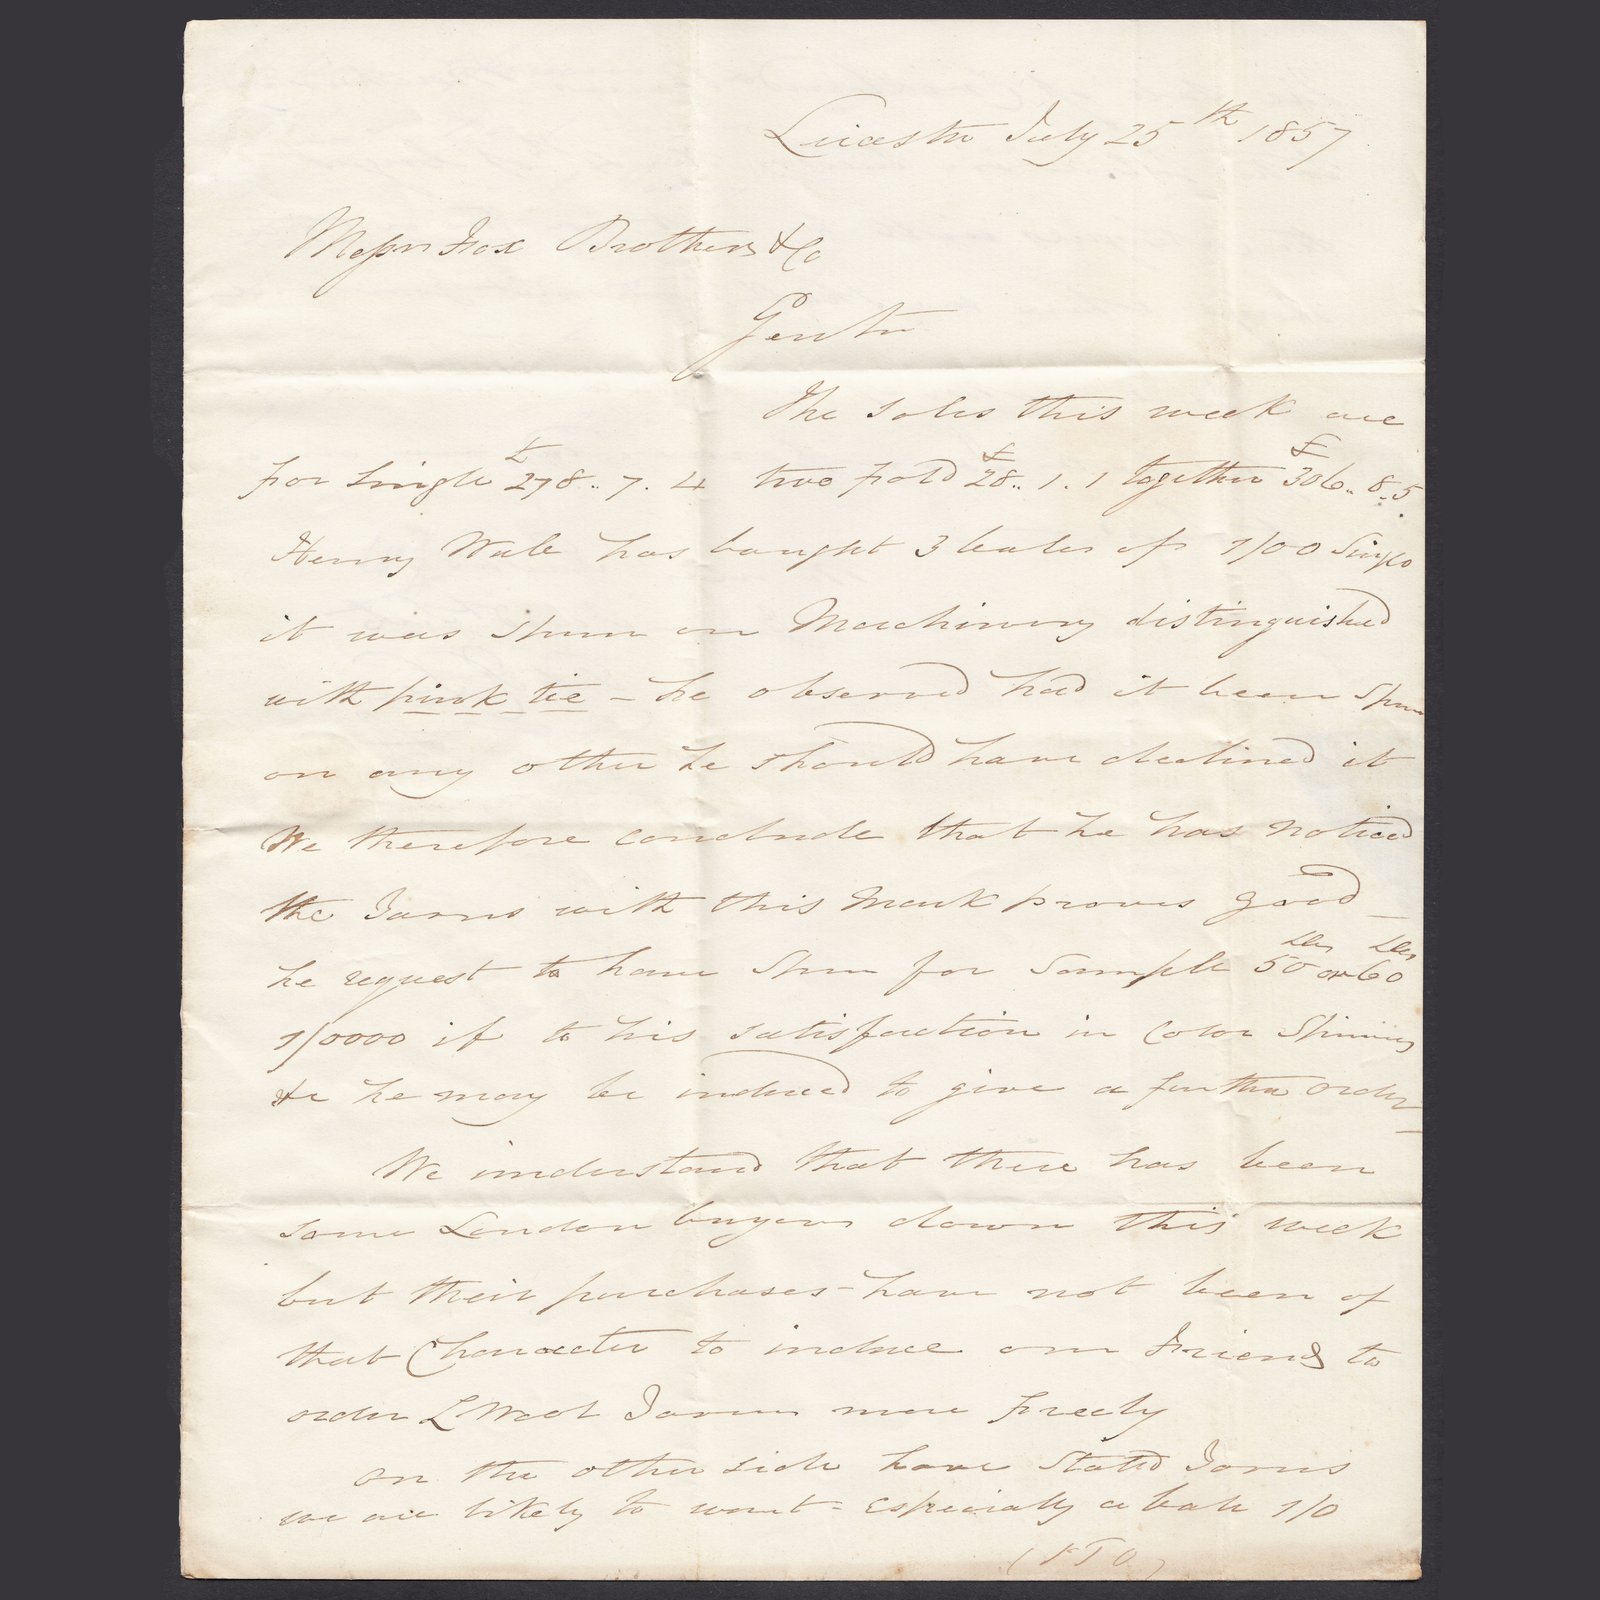 Leicester July 25th 1857
Messrs Fox Brothers & Co
Gentn
The Sales this week are
for Single £278..7.4 two fold £28..1.1 together £306..8.5
Henry Wale has bought 3 bales of 1/00 Single
it was Spun on Machinery distinguished
with pink tie - he observed had it been Spun
on any other he should have declined it
We therefore conclude that he has noticed
the Yarns with this Mark proves good _
he request to have Spun for Sample 50 lbs or 60 lbs
1/0000 if to his satisfaction in Color Spinning
&c he may be induced to give a further order _
We understand that there has been
some London buyers down this week
but their purchases - have not been of
that Character to induce our Friends to
order L Wool Yarns more freely
on the other side have Stated Yarns
we are likely to want = especially a bale 1/0
(PTO)